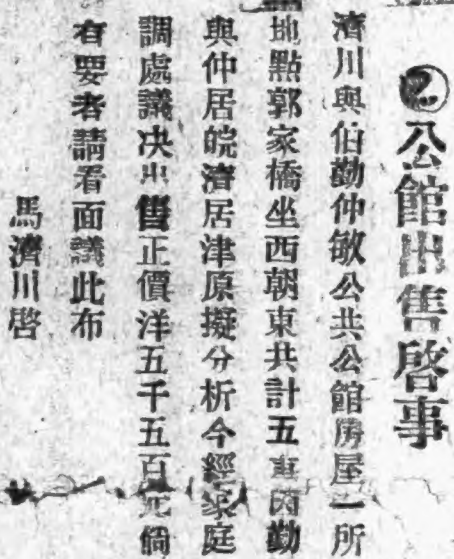 公館出售啓事
濟川與伯勤仲敏公共公館房屋一所
地點郭家橋坐西朝東共計五車因勤
與仲居皖濟居津原擬分析今經家庭
調處議决出售正價洋五千五百元倘
有要者請看面議此布
馬濟川啓